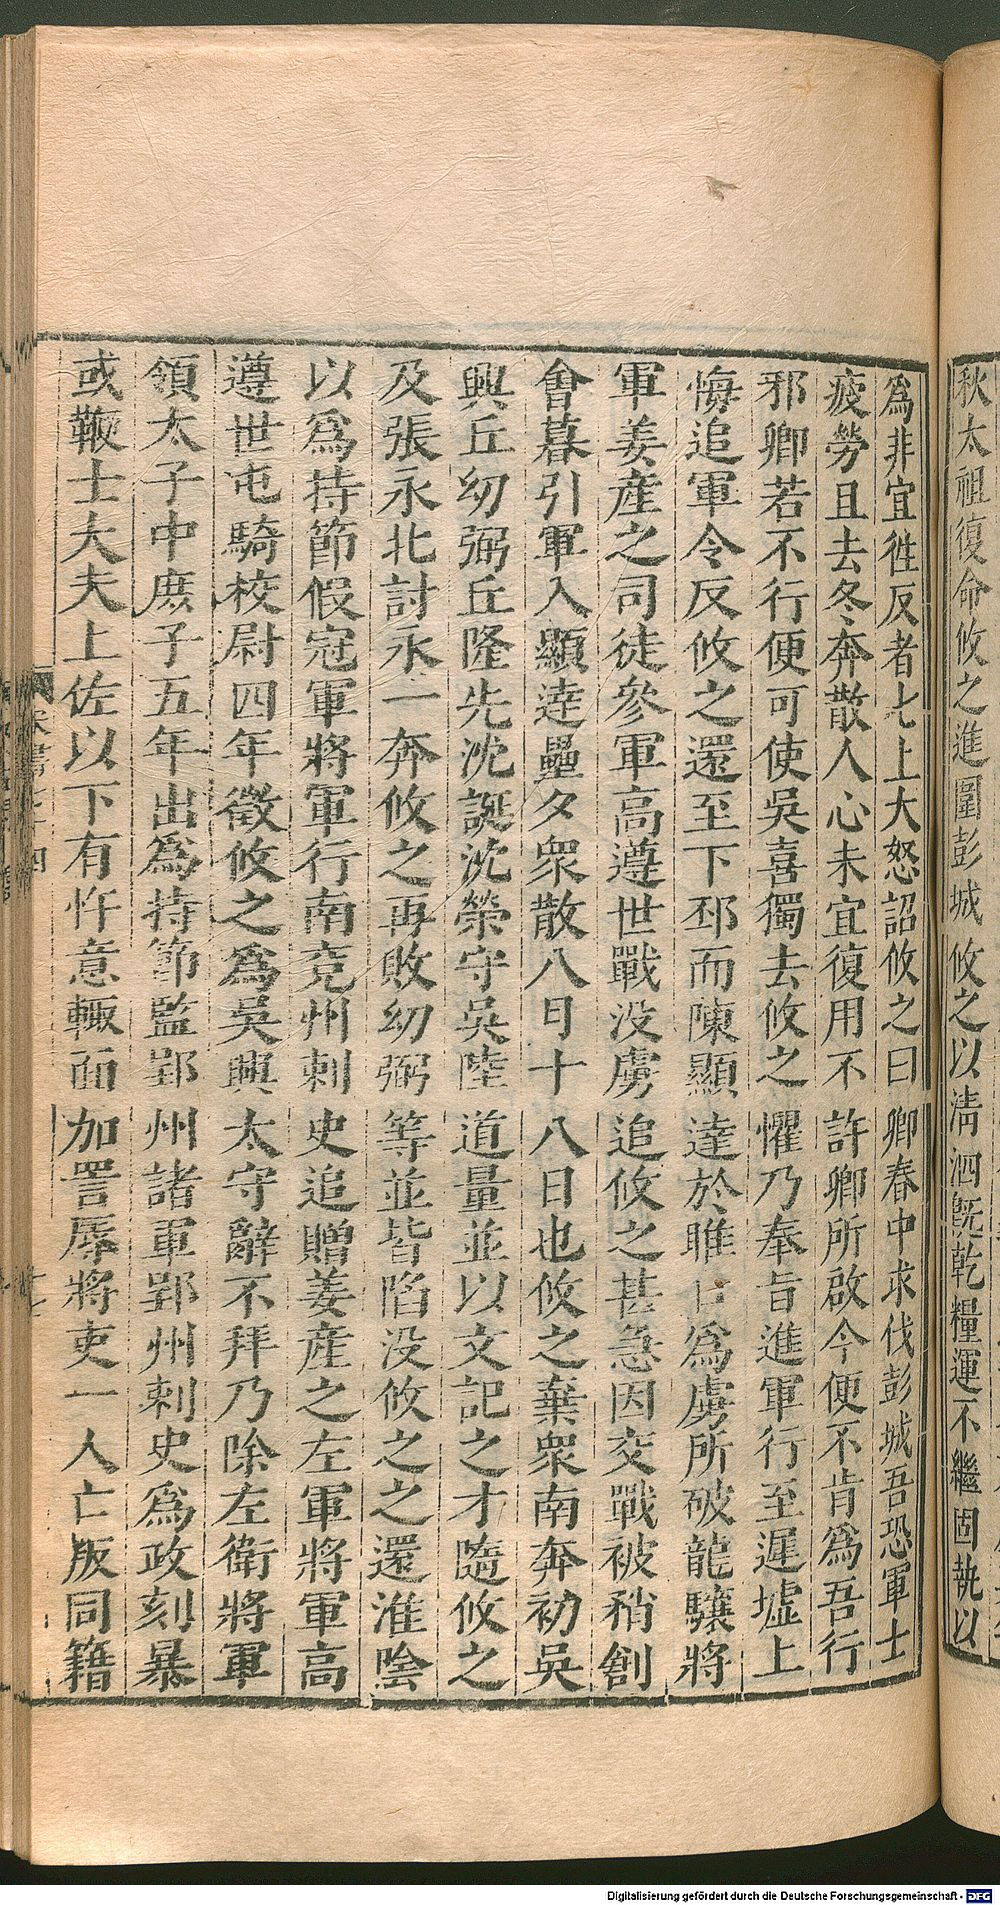 秋太祖復命攸之進圍彭城攸之以淸泗旣乾糧運不繼固執以
爲非宜徃反者七上大怒詔攸之曰卿春中求伐彭城吾恐軍士
疲勞且去冬奔散人心未宜復用不許卿所啟今便不肯爲吾行
邪卿若不行便可使吳喜獨去攸之懼乃奉旨進軍行至遲墟上
悔追軍令反攸之還至下邳而陳顯達於睢口爲虜所破龍驤將
軍姜產之司徒參軍高遵世戰没虜追攸之甚急因交戰被稍創
會暮引軍入顯達壘夕衆散八月十八日也攸之棄衆南奔初吳
興丘幼弼丘隆先沈誕沈榮守吳陸道量並以文記之才隨攸之
及張永北討永一奔攸之再敗幼弼等並皆陷没攸之之還淮陰
以爲持節假冠軍將軍行南兗州刺史追贈姜產之左軍將軍高
遵世屯騎校尉四年徵攸之爲吳興太守辭不拜乃除左衛將軍
領太子中庶子五年出爲持節監郢州諸軍郢州刺史爲政刻暴
或鞭士大夫上佐以下有忤意輒面加詈辱將吏一人亡叛同籍
Digitalisierung gefördert durch die Deutsche Forschungsgemeinschaft - DFG